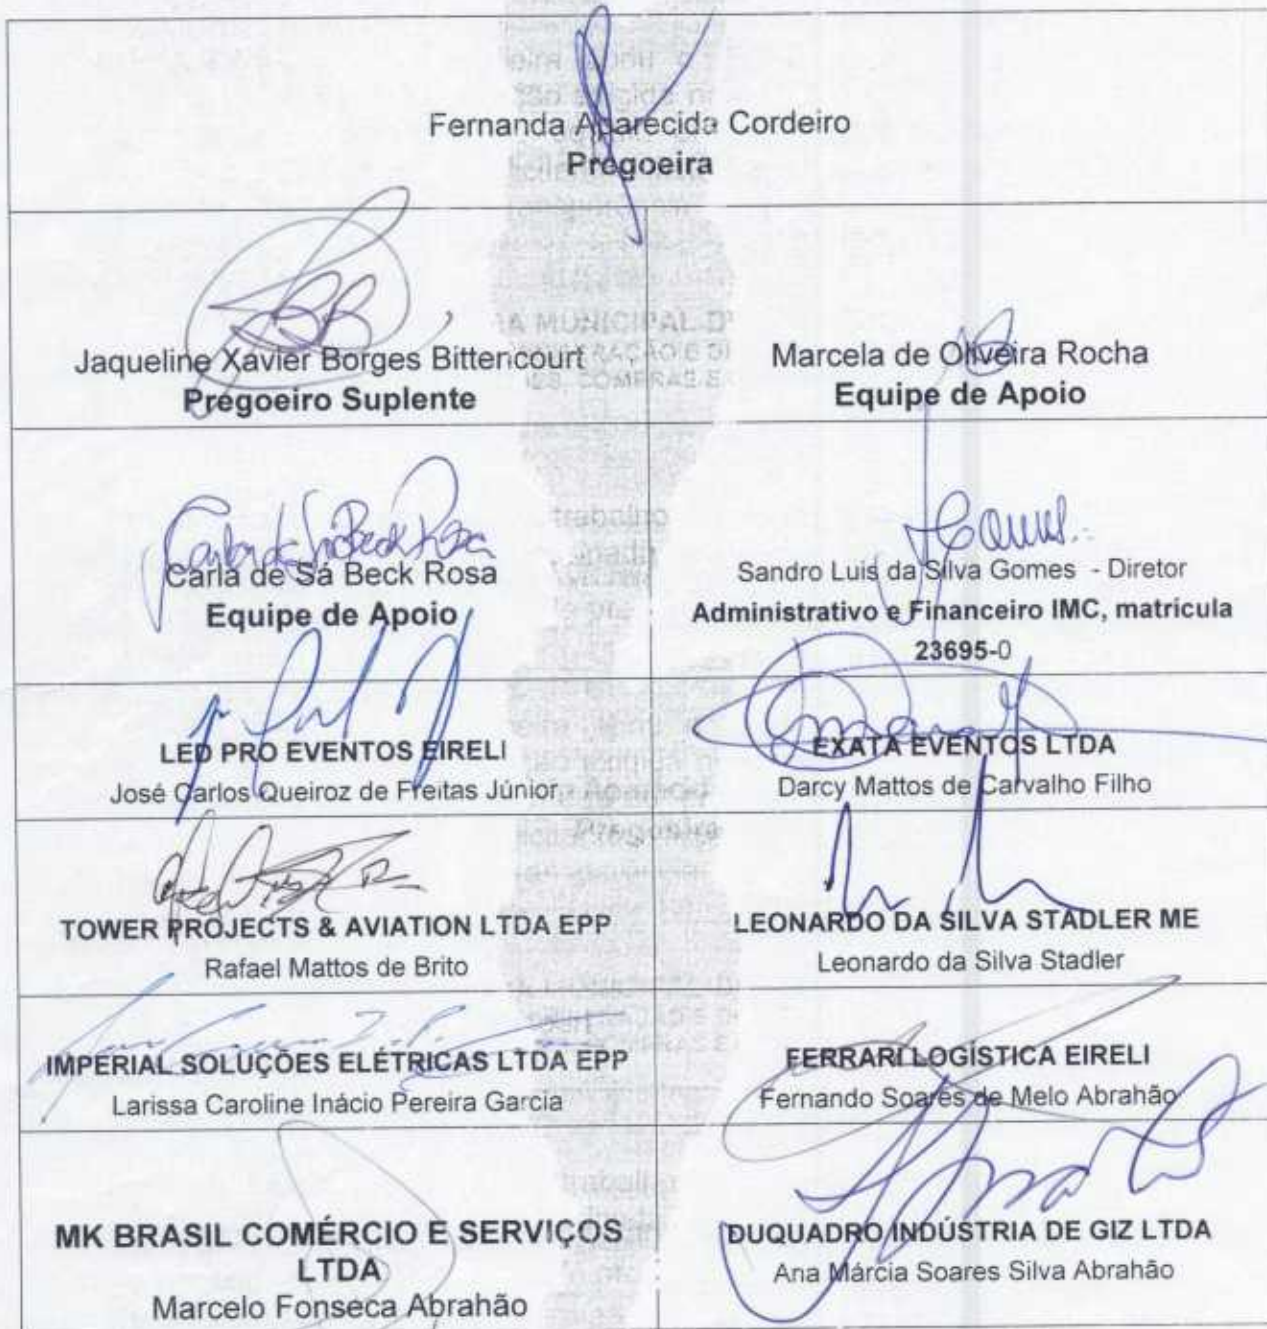 Fernanda Aparecida Cordeiro
Pregoeira
Jaqueline Xavier Borges Bittencourt
Pregoeiro Suplente
Marcela de Oliveira Rocha
Equipe de Apoio
Carla de Sá Beck Rosa
Equipe de Apoio
Sandro Luis da Silva Gomes - Diretor
Administrativo e Financeiro IMC, matrícula
23695-0
LED PRO EVENTOS EIRELI
José Carlos Queiroz de Freitas Júnior
EXATA EVENTOS LTDA
Darcy Mattos de Carvalho Filho
TOWER PROJECTS & AVIATION LTDA EPP
Rafael Mattos de Brito
LEONARDO DA SILVA STADLER ME
Leonardo da Silva Stadler
IMPERIAL SOLUÇÕES ELÉTRICAS LTDA EPP
Larissa Caroline Inácio Pereira Garcia
FERRARI LOGÍSTICA EIRELI
Fernando Soares de Melo Abrahão
MK BRASIL COMÉRCIO E SERVIÇOS
LTDA
Marcelo Fonseca Abrahão
DUQUADRO INDÚSTRIA DE GIZ LTDA
Ana Márcia Soares Silva Abrahão